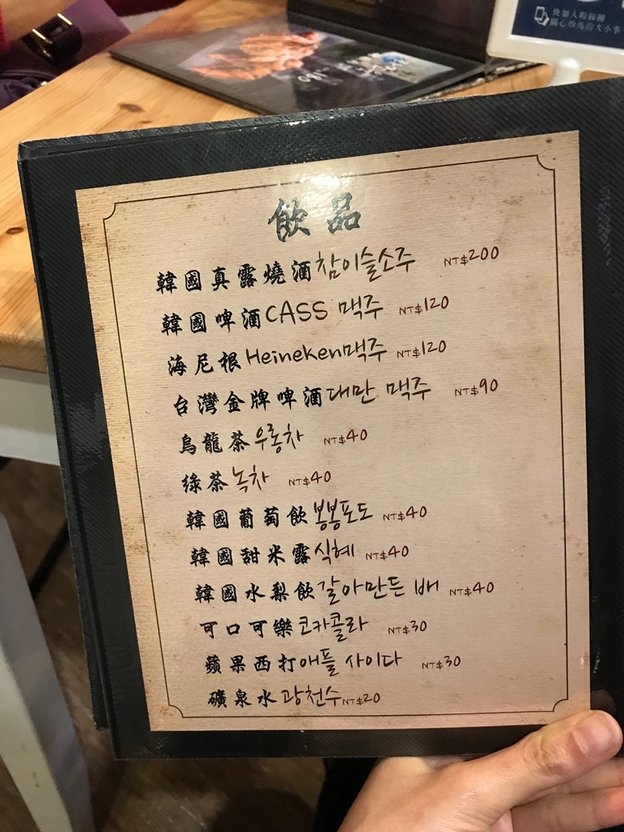 快加入粉絲團
飲品
韓國真露燒酒참이슬소주 NT$200
韓國啤酒CASS 맥주 NT$120
海尼根Heineken맥주 NT$120
台灣金牌啤酒대만 맥주 NT$90
烏龍茶우롱차 NT$40
綠茶녹차 NT$40
韓國葡萄飲봉봉포도 NT$40
韓國甜米露식혜 NT$40
韓國水梨飲갈아만든 배 NT$40
可口可樂코카콜라 NT$30
蘋果西打애플 사이다 NT$30
礦泉水광천수NT$20